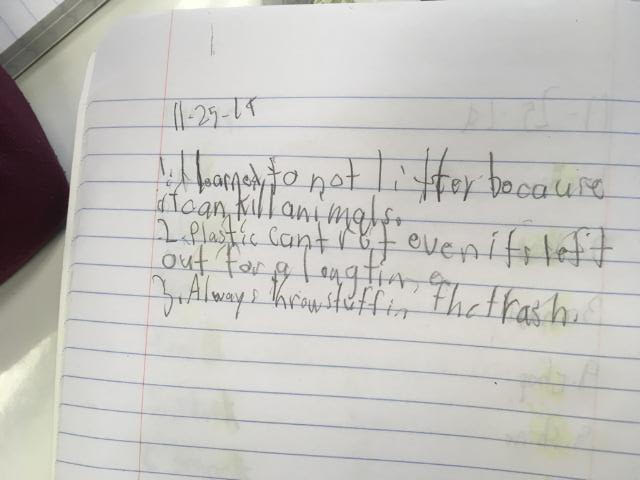 1
11-25-19
1. I learned to not litter because
it can kill animals.
2. Plastic cant rot even if its left
out for a long time
3. Always throw stuff in the trash.